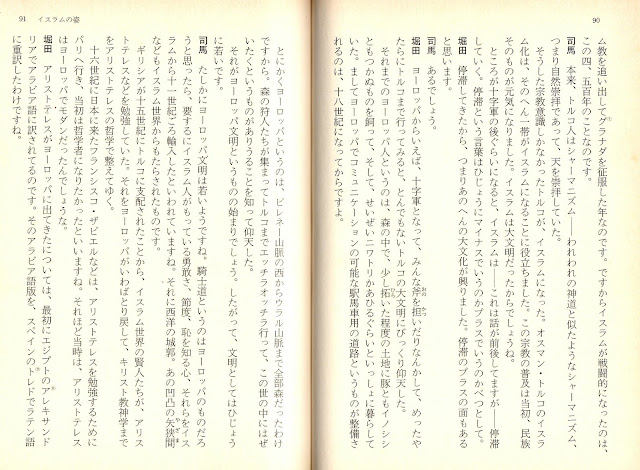 90
ム教を追い出してグラナダを征服した年なのです。ですからイスラムが戦闘的になったのは、
この四、五百年のことなのです。
司馬 本来、トルコ人はシャーマニズム——われわれの神道と似たようなシャーマニズム、
つまり自然崇拝であって、天を崇拝していた。
そうした宗教意識しかなかったトルコが、イスラムになった。オスマン・トルコのイスラ
ム化は、そのへん一帯がイスラムになることに役立ちました。この宗教の普及は当初、民族
そのものが元気になりました。イスラムは大文明だったからでしょうね。
ところが十字軍の後ぐらいになると、イスラムは——これは話が前後してますが——停滞
していく。停滞という言葉はひじょうにマイナスでいうのかプラスでいうのかべつとして。
堀田 停滞してきたから、つまりあのへんの大文化が興りました。停滞のプラスの面もある
と思います。
司馬 あるでしょう。
堀田 ヨーロッパからいえば、十字軍となって、みんな斧を担いだりなんかして、めったや
たらにトルコまで行ってみると、とんでもないトルコの大文明にびっくり仰天した。
それまでのヨーロッパ人というのは、森の中で、少し拓いた程度の土地に豚ともイノシシ
ともつかぬものを飼って、そして、せいぜいニワトリかあひるぐらいといっしょに暮らして
いた。ましてヨーロッパでコミュニケーションの可能な駅馬車用の道路というものが整備さ
れるのは、十八世紀になってからですよ。
91 イスラムの姿
とにかくヨーロッパというのは、ピレネー山脈の西からウラル山脈まで全部森だったわけ
ですから。森の狩人たちが集まってトルコまでエッチラオッチラ行って、この世の中にはぜ
いたくというものがありうることを知って仰天した。
それがヨーロッパ文明というものの始まりでしょう。したがって、文明としてはひじょう
に若いです。
司馬 たしかにヨーロッパ文明は若いようですね。騎士道というのはヨーロッパのものだろ
うと思ったら、要するにイスラム人がもっている勇敢さ、節度、恥を知る心、それらをイス
ラムから十一世紀ごろ輸入したといわれていますね。それに西洋の城郭。あの凹凸の矢狭間
などもイスラム世界からもたらされたものです。
ギリシアが十五世紀にトルコに支配されたことから、イスラム世界の賢人たちが、アリス
トテレスなどを勉強していた。それをヨーロッパがいわばとり戻して、キリスト教神学まで
をアリストテレスの哲学で整えてゆく。
十六世紀に日本に来たフランシスコ・ザビエルなどは、アリストテレスを勉強するために
パリへ行き、当初は哲学者になりたかったといいますね。それほど当時は、アリストテレス
はヨーロッパでモダンだったんでしょうな。
堀田 アリストテレスがヨーロッパに出てきたについては、最初にエジプトのアレキサンド
リアでアラビア語に訳されてるのです。そのアラビア語版を、スペインのトレドでラテン語
に重訳したわけですね。